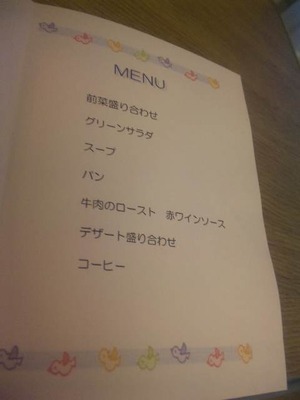 MENU
前菜盛り合わせ
グリーンサラダ
スープ
パン
牛肉のロースト　赤ワインソース
デザート盛り合わせ
コーヒー